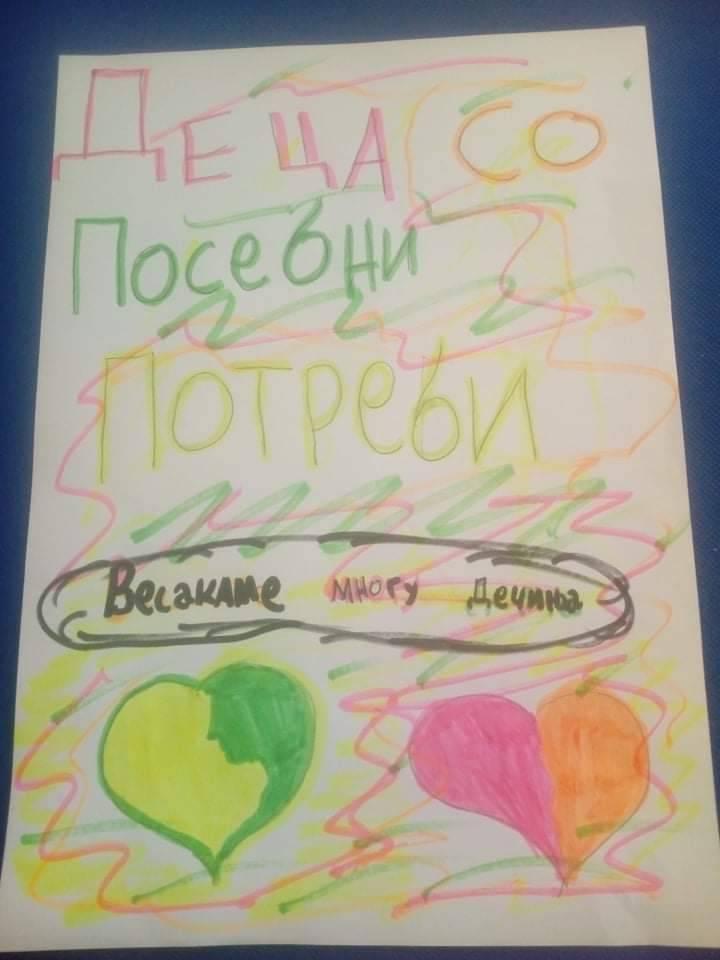 ДЕЦА СО
Посебни
ПОТРеби
Весакаме многу Дечиња